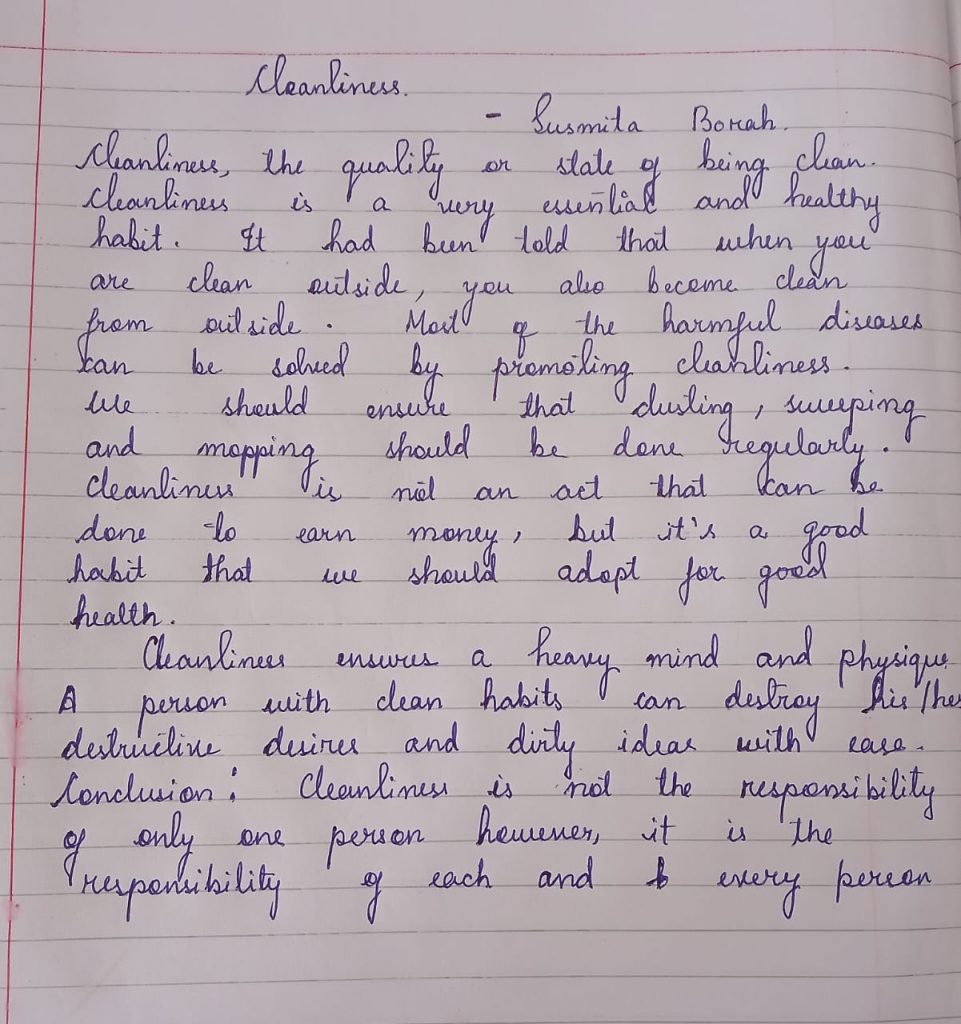 Cleanliness.
- Susmita Borah.
Cleanliness, the quality or state of being clean.
Cleanliness is a very essential and healthy
habit. It had been told that when you
are clean outside, you also become clean
from outside. Most of the harmful diseases
can be solved by promoting cleanliness.
We should ensure that dusting, sweeping
and mopping should be done regularly.
Cleanliness is not an act that can be
done to earn money, but it's a good
habit that we should adopt for good
health.
Cleanliness ensures a heavy mind and physique.
A person with clean habits can destroy his/her
destructive desires and dirty ideas with ease.
Conclusion: Cleanliness is not the responsibility
of only one person however, it is the
responsibility of each and every person